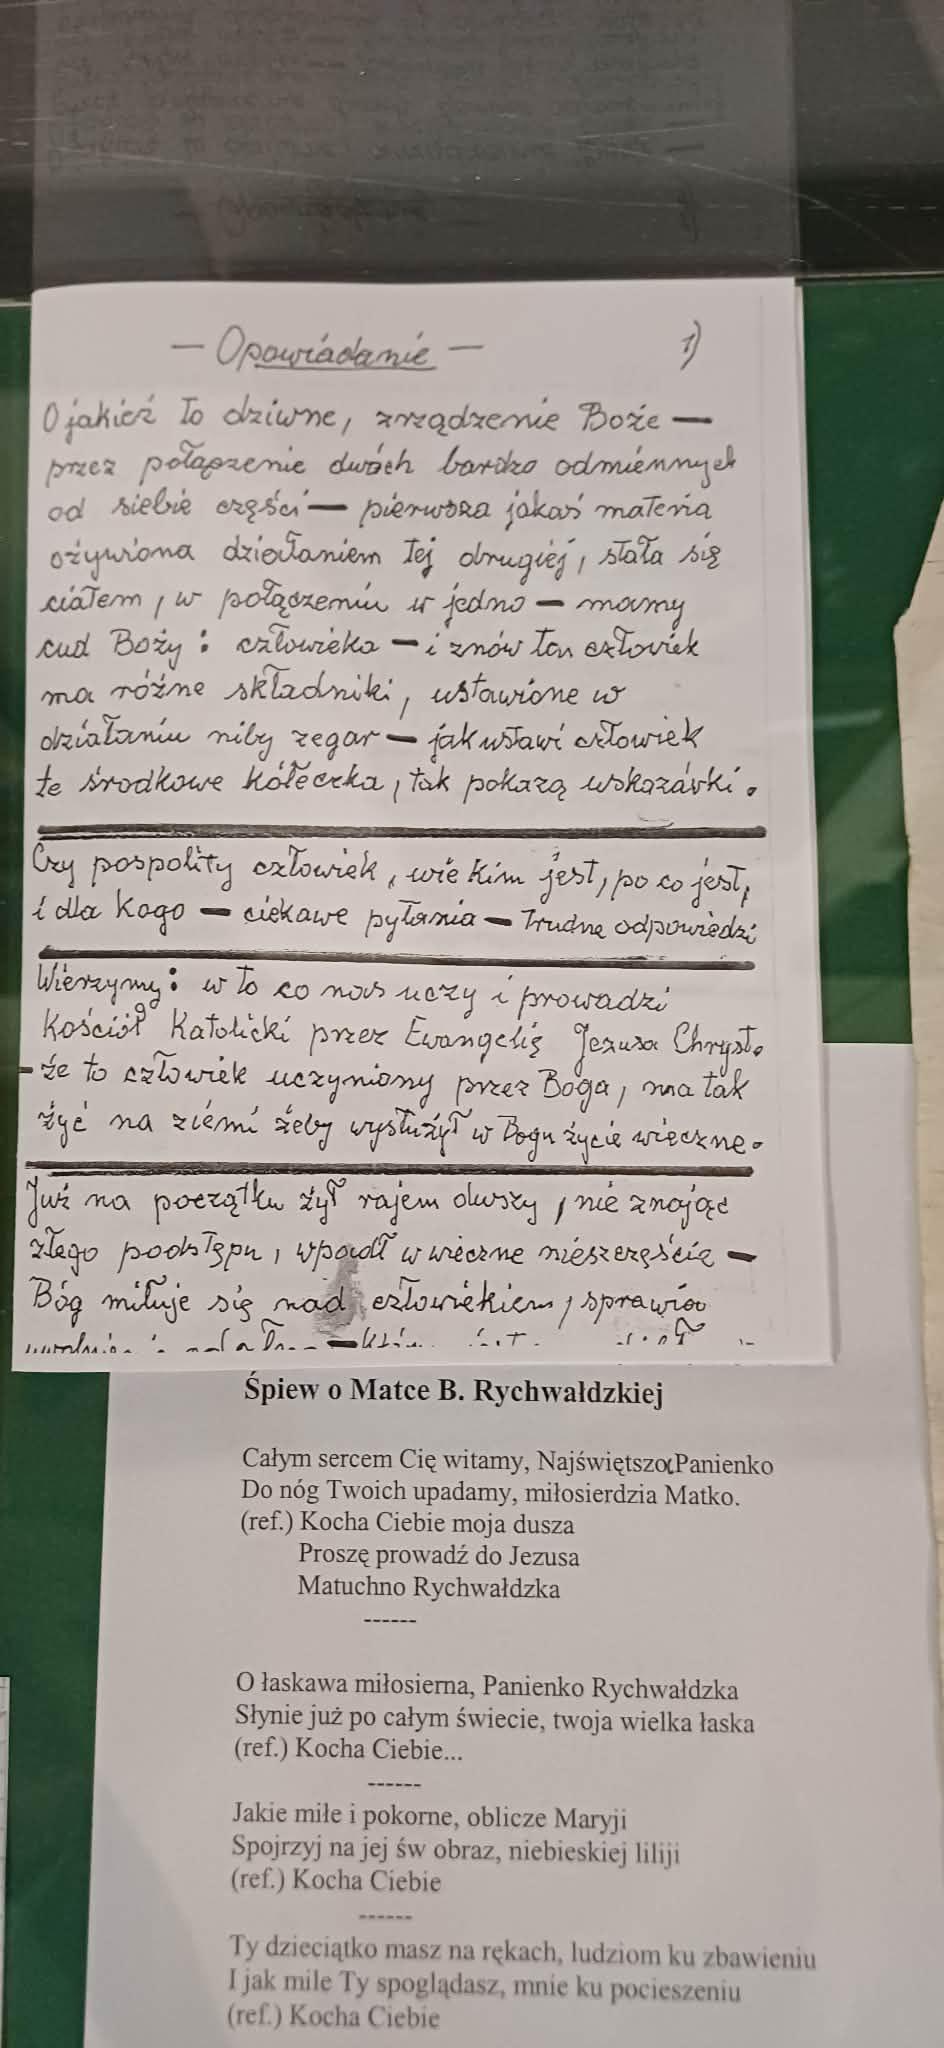 — Opowiadanie — 1)
O jakież to dziwne, zrządzenie Boże —
przez połączenie dwóch bardzo odmiennych
od siebie części — pierwsza jakaś materia
ożywiona działaniem tej drugiej, stała się
ciałem, w połączeniu w jedno — mamy
cud Boży: człowieka — i znów ten człowiek
ma różne składniki, ustawione w
działaniu niby zegar — jak ustawi człowiek
te środkowe kółeczka, tak pokażą wskazówki.
Czy pospolity człowiek, wie kim jest, po co jest,
i dla kogo — ciekawe pytania — trudne odpowiedzi
Wierzymy: w to co nas uczy i prowadzi
Kościół Katolicki przez Ewangelię Jezusa Chryst.
— że to człowiek uczyniony przez Boga, ma tak
żyć na ziemi żeby wysłużył w Bogu życie wieczne.
Już na początku żył rajem duszy, nie znając
złego podstępu, wpadł w wieczne nieszczęście —
Bóg miłuje się nad człowiekiem, sprawia
Śpiew o Matce B. Rychwałdzkiej
Całym sercem Cię witamy, Najświętsza Panienko
Do nóg Twoich upadamy, miłosierdzia Matko.
(ref.) Kocha Ciebie moja dusza
Proszę prowadź do Jezusa
Matuchno Rychwałdzka
------
O łaskawa miłosierna, Panienko Rychwałdzka
Słynie już po całym świecie, twoja wielka łaska
(ref.) Kocha Ciebie...
------
Jakie miłe i pokorne, oblicze Maryji
Spojrzyj na jej św obraz, niebieskiej liliji
(ref.) Kocha Ciebie
------
Ty dzieciątko masz na rękach, ludziom ku zbawieniu
I jak mile Ty spoglądasz, mnie ku pocieszeniu
(ref.) Kocha Ciebie